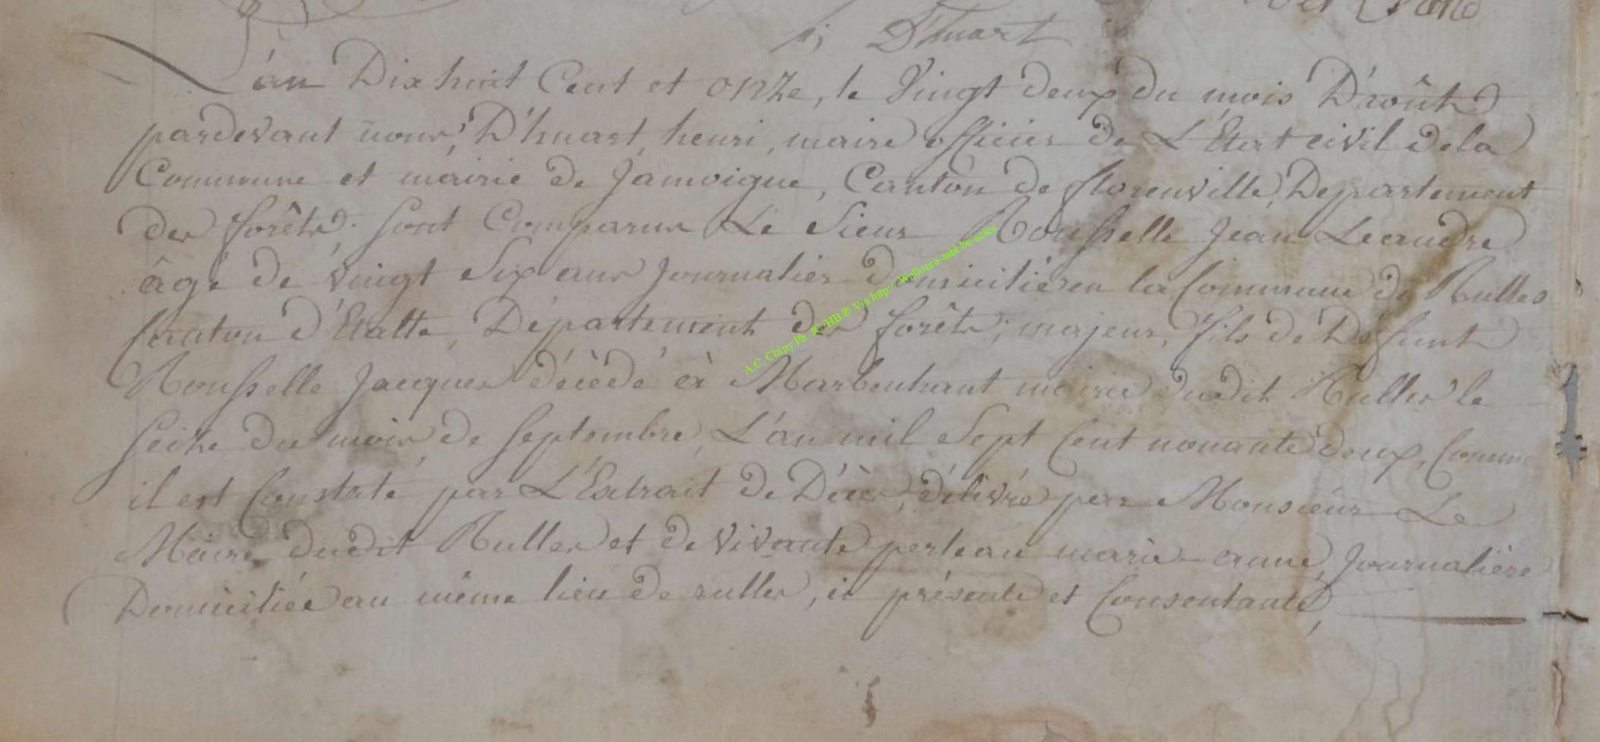 D'huart
L'an Dix huit Cent et onze, le Vingt deux du mois D'août
pardevant nous, D'huart, henri, maire officier de L'Etat civil de la
Commune et mairie de Jamoigne, Canton de florenville, Departement
des forêts, sont Comparus Le Sieur Rousselle Jean Leandre
âgé de Vingt Six ans Journalier domicilié en la Commune de Rulles
Canton d'Etalle, Département des forêts; majeur, fils de Defunt
Rousselle Jacques décédé à Marbeuhant mairie dudit Rulles le
Seize du mois de Septembre, L'an mil Sept Cent nonante deux, Comme
il est Constaté par L'Extrait de Décès, délivré par Monsieur Le
Maire dudit Rulles et de Vivante perleau marie anne, Journalière
Domiciliée au même lieu de rulles, ici présente et Consentante,
A.C. Chiny Ph. JC/HB ® Via http://Wallonia-asbl.be/actes